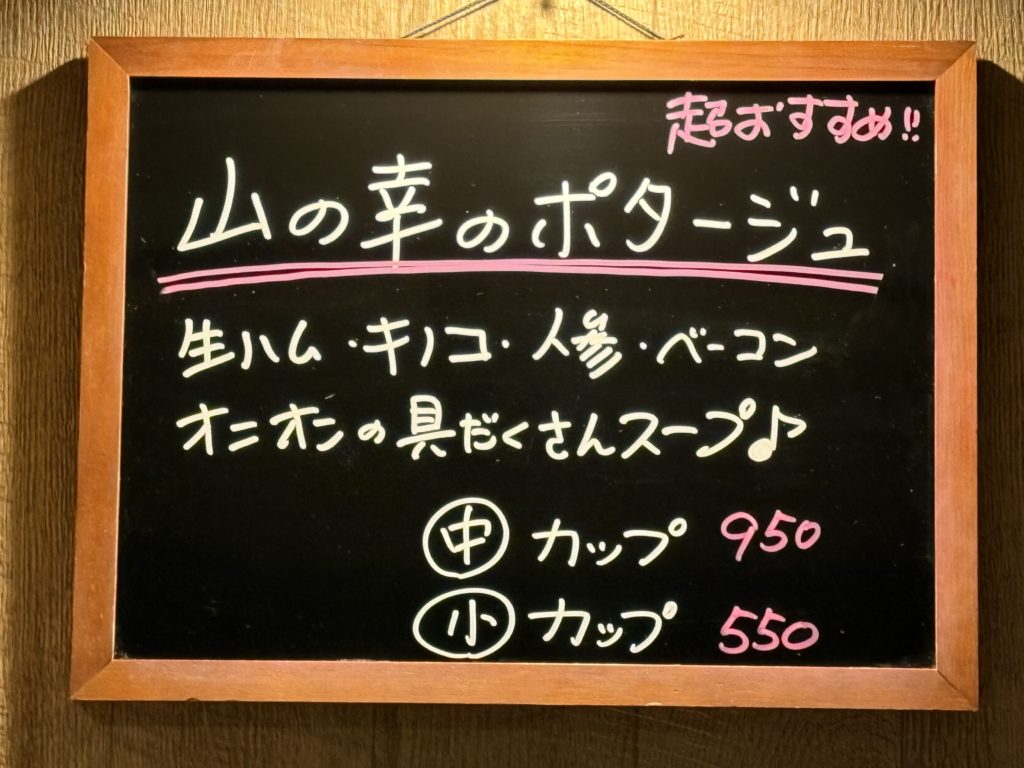 超おすすめ!!
山の幸のポタージュ
生ハム・キノコ・人参・ベーコン
オニオンの具だくさんスープ♪
㊥カップ 950
小カップ 550